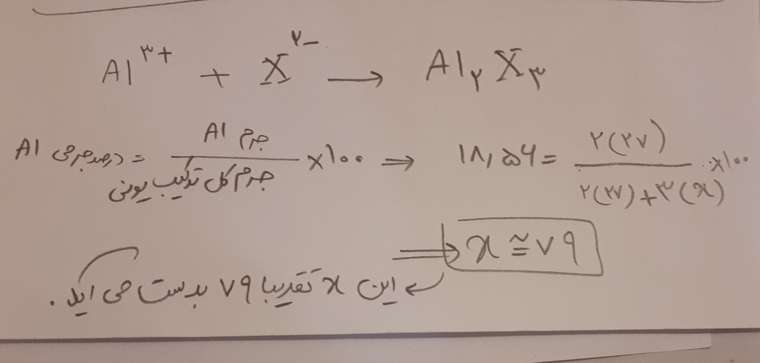 Al³⁺ + X²⁻ → Al₂X₃
درصد جرمی Al = جرم Al / جرم کل ترکیب یونی ×۱۰۰ ⇒ ۱۸,۵۶ = ۲(۲۷) / ۲(۲۷)+۳(x) ×۱۰۰
⇒ x ≅ ۷۹
این x تقریبا ۷۹ بدست می آید.